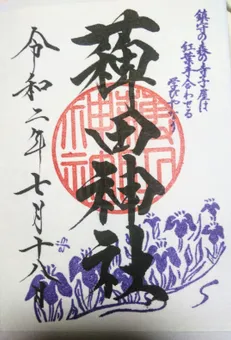 鎮守の森の寺子屋は
紅葉手合わせる
学びやかり
薭田神社
令和二年七月十八日